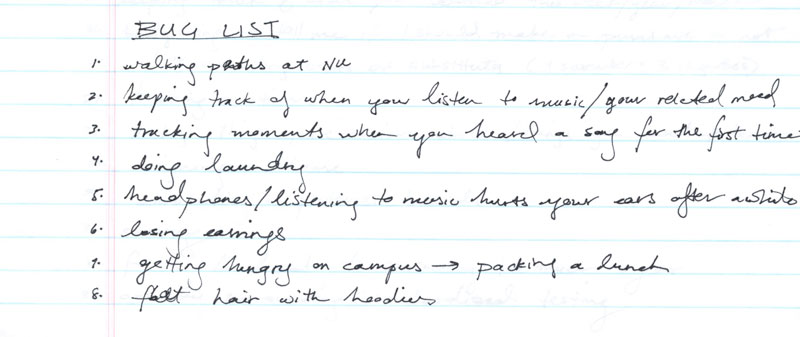 BUG LIST
1. walking paths at NU
2. keeping track of when you listen to music/your related mood
3. tracking moments when you heard a song for the first time
4. doing laundry
5. headphones/listening to music hurts your ears after awhile
6. losing earrings
7. getting hungry on campus → packing a lunch
8. flat hair with hoodies